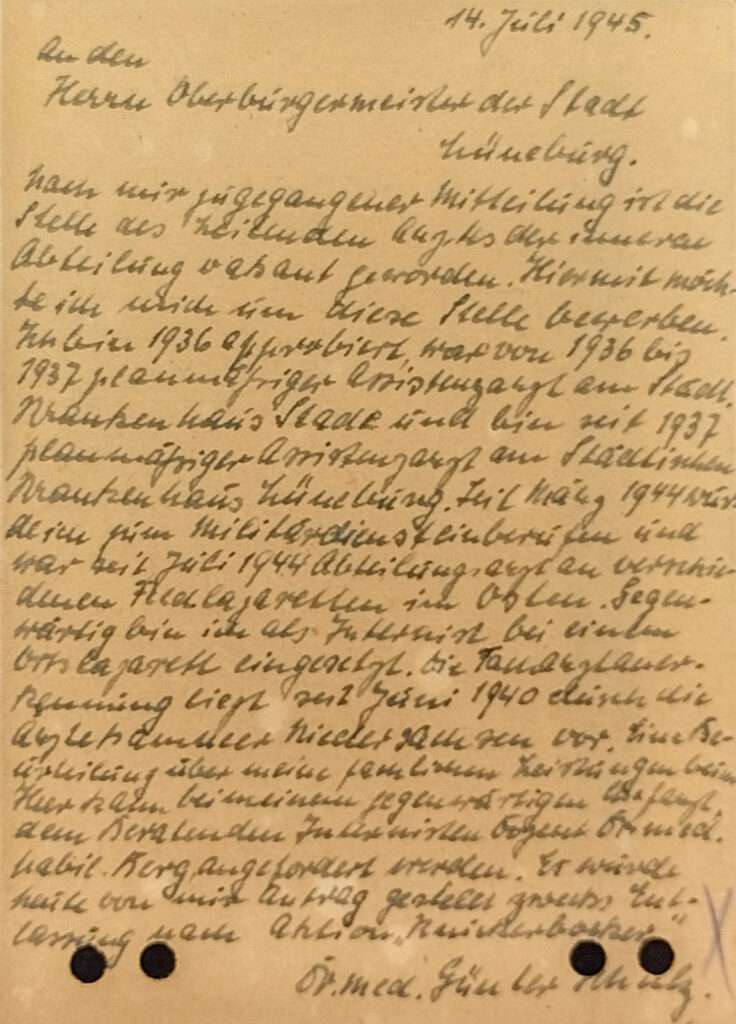 14. Juli 1945.
An den
Herrn Oberbürgermeister der Stadt
Lüneburg.
Nach mir zugegangener Mitteilung ist die
Stelle des Leitenden Arztes der inneren
Abteilung vakant geworden. Hiermit möch-
te ich mich um diese Stelle bewerben.
Ich bin 1936 approbiert, war von 1936 bis
1937 planmäßiger Assistenzarzt am Städt.
Krankenhaus Stade und bin seit 1937
planmäßiger Assistenzarzt am Städtischen
Krankenhaus Lüneburg. Seit März 1944 wur-
de ich zum Militärdienst einberufen und
war seit Juli 1944 Abteilungsarzt an verschie-
denen Feldlazaretten im Osten. Gegen-
wärtig bin ich als Internist bei einem
Ortslazarett eingesetzt. Die Facharztaner-
kennung liegt seit Juni 1940 durch die
Ärztekammer Niedersachsen vor. Eine Be-
urteilung über meine fachlichen Leistungen beim
Heer kann bei meinem gegenwärtigen
dem Beratenden Internisten Dozent Dr. med.
habil. Berg angefordert werden. Es wurde
heute von mir Antrag gestellt zwecks Ent-
lassung nach Aktion „Knickerbocker"
Dr. med. Günter Schulz.